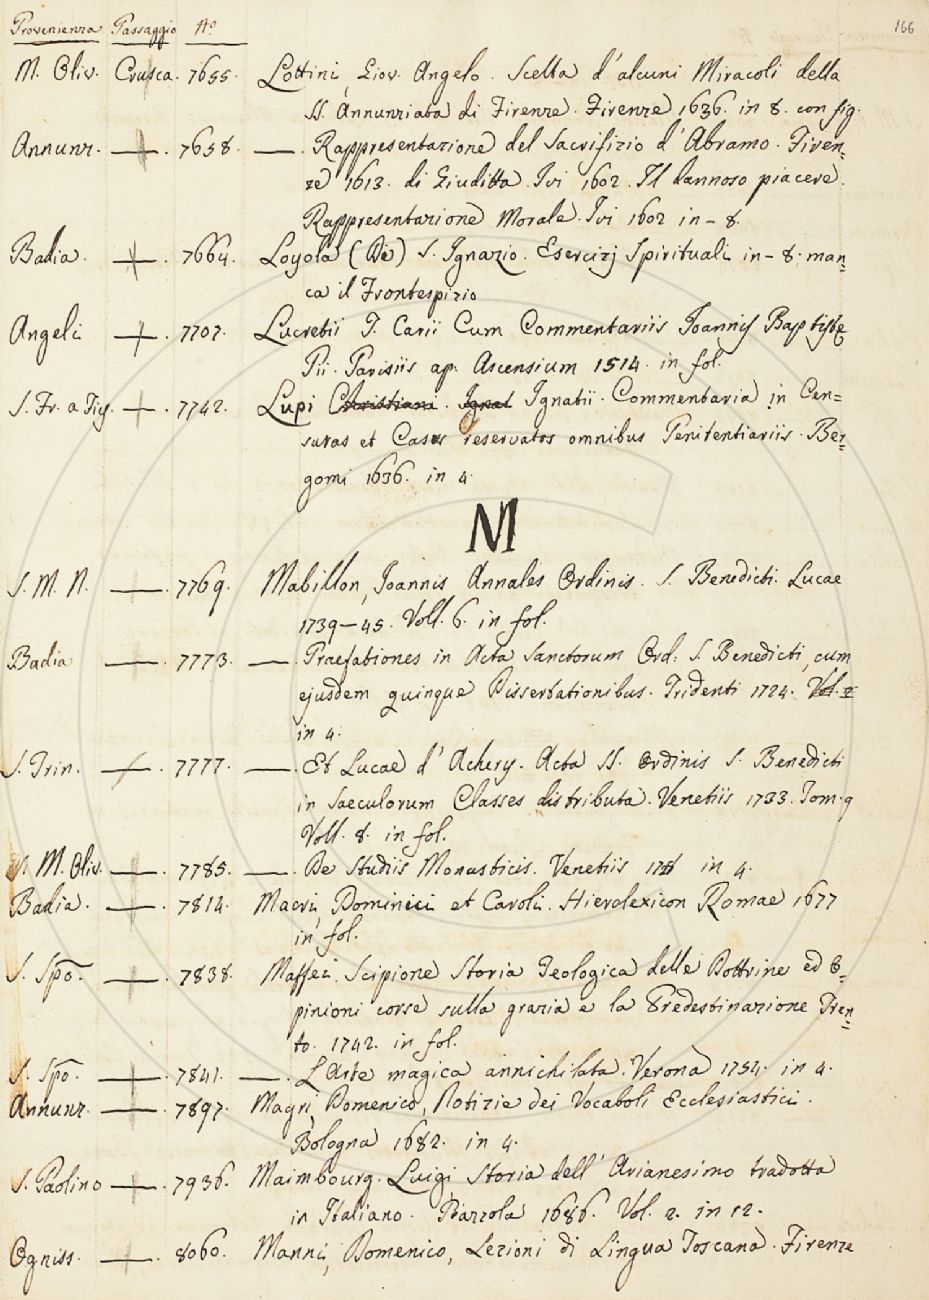 Provenienza Passaggio No. 166
M. Oliv. Crusca. 7655. Lottini, Giov. Angelo. Scelta d'alcuni Miracoli della
SS. Annunziata di Firenze. Firenze 1636. in 8. con fig.
Annunz. — . 7658. — . Rappresentazione del Sacrifizio d'Abramo. Firen=
ze 1613. di Giuditta. Ivi 1602. Il dannoso piacere.
Rappresentazione Morale. Ivi 1602 in-8.
Badia. — . 7664. Loyola (De) S. Ignazio. Esercizj Spirituali in-8. man=
ca il Frontespizio
Angeli — . 7707. Lucretii T. Carii Cum Commentariis Joannis Baptistę
Pii. Parisiis ap. Ascensium 1514. in fol.
S. Fr. a Pig. — . 7742. Lupi Christiani. Ignat Ignatii. Commentaria in Cen=
suras et Casus reservatos omnibus Penitentiariis. Ber=
gomi 1636. in 4.
M
S. M. N. — . 7769. Mabillon, Joannis Annales Ordinis. S. Benedicti. Lucae
1739-45. Voll. 6. in fol.
Badia — . 7773. — . Praefationes in Acta Sanctorum Ord: S. Benedicti, cum
ejusdem quinque Dissertationibus. Tridenti 1724. Vol. 2
in 4.
S. Trin. — . 7777. — . Et Lucae d'Achery. Acta SS. Ordinis S. Benedicti
in Saeculorum Classes distributa. Venetiis 1733. Tom. 9
Voll. 8. in fol.
M. Oliv. — . 7785. — . De Studiis Monasticis. Venetiis in 4.
Badia. — . 7814. Macri, Dominici et Caroli. Hierolexicon Romae 1677
in fol.
S. Spo. — . 7838. Maffei. Scipione Storia Teologica delle Dottrine ed O=
pinioni corse sulla grazia e la Predestinazione Tren=
to. 1742. in fol.
S. Spo. — . 7841. — . L'Arte magica annichilata. Verona 1754. in 4.
Annunz. — . 7897. Magri, Domenico, Notizie dei Vocaboli Ecclesiastici.
Bologna 1682. in 4.
S. Paolino — . 7936. Maimbourg. Luigi Storia dell'Arianesimo tradotta
in Italiano. Piazzola 1686. Vol. 2. in 12.
Ogniss. — . 8060. Manni, Domenico, Lezioni di Lingua Toscana. Firenze